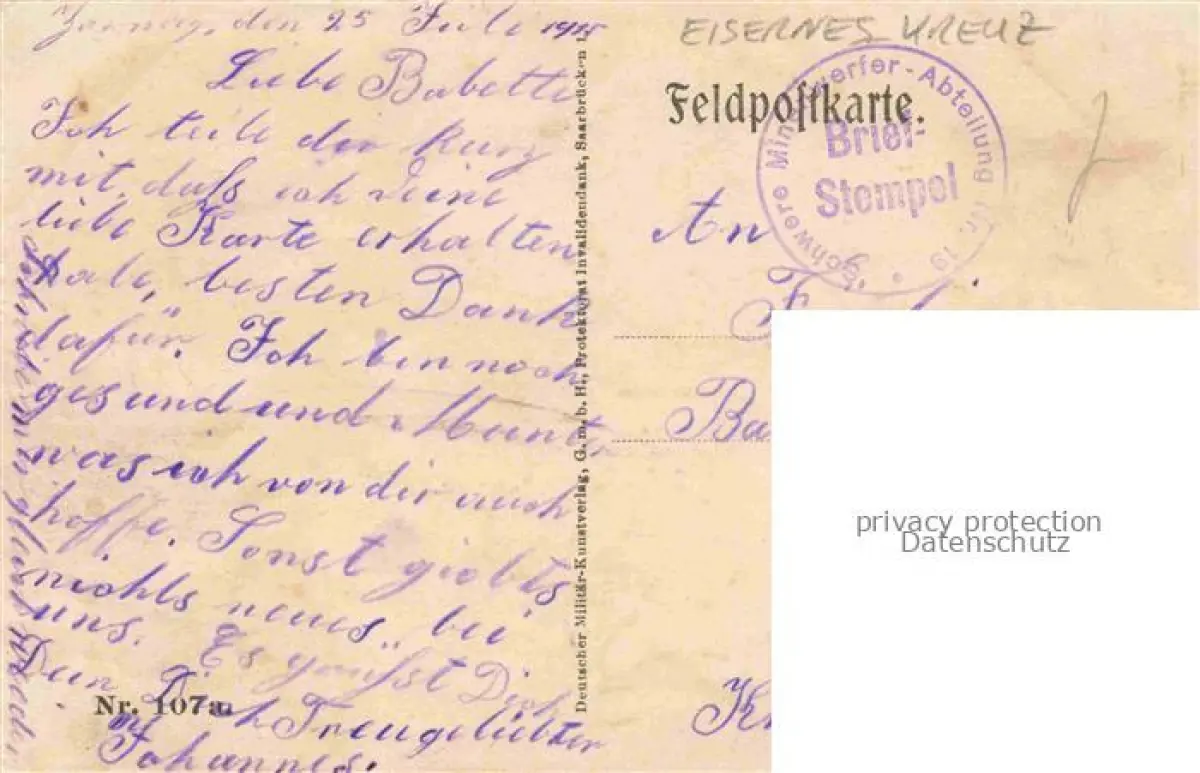 den 25 Juli 1915
Liebe Babette
Ich teile dir kurz
mit, daß ich deine
liebe Karte erhalten
habe, besten Dank
dafür. Ich bin noch
gesund und Munter
was ich von dir auch
hoffe. Sonst giebts
nichts neues, bei
uns. Es grüßt Dich
Dein Dich
Treugeliebter
Johannes.
Nr. 107a.
Deutscher Militär-Kunstverlag, G. m. b. H., Protektorat Invalidendank, Saarbrücken 1
EISERNES KREUZ
Feldpostkarte.
Schwere Minenwerfer-Abteilung Nr. 19
Brief-
Stempel
An
Ba
privacy protection
Datenschutz